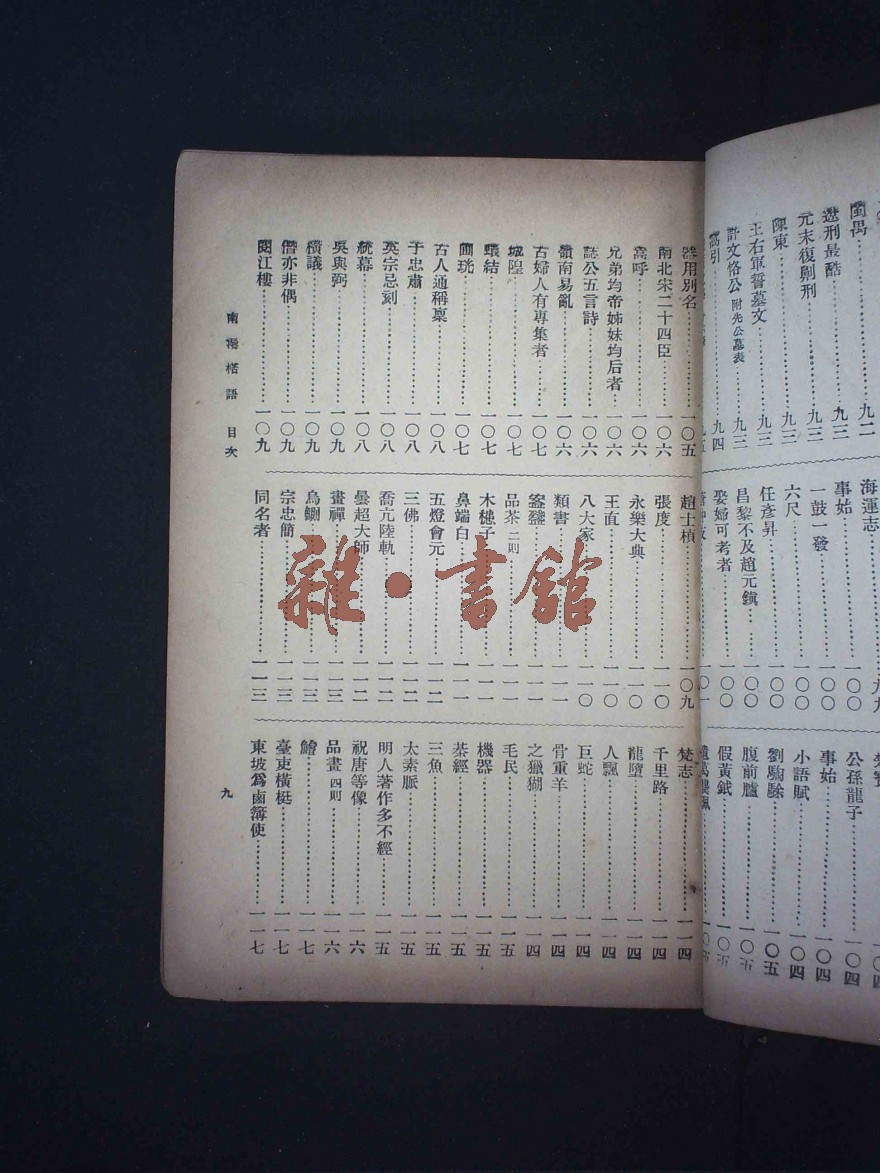 閩禺……九二
遼刑最酷……九三
元末復劓刑……九三
陳東……九三
王右軍誓墓文……九三
許文恪公 附先公墓表……九三
九四
海運志……九九
事始……一〇〇
一鼓一發……一〇〇
六尺……一〇〇
任彥昇……一〇〇
昌黎不及趙元鎭……一〇〇
娶婦可考者……一〇〇
公孫龍子……一〇四
事始……一〇四
小語賦……一〇四
劉騊駼……一〇五
腹前臚……一〇五
假黃鉞……一〇五
器用別名……一〇五
南北宋二十四臣……一〇六
嵩呼……一〇六
兄弟均帝姊妹均后者……一〇六
誌公五言詩……一〇六
嶺南易亂……一〇六
古婦人有專集者……一〇七
城隍……一〇七
蠉結……一〇七
圃珖……一〇七
古人通稱稟……一〇八
于忠肅……一〇八
英宗忌刻……一〇八
統幕……一〇八
吳與弼……一〇九
橫議……一〇九
僭亦非偶……一〇九
閱江樓……一〇九
趙士楨……一〇九
張度……一一〇
永樂大典……一一〇
王直……一一〇
八大家……一一〇
類書……一一一
品茶 二則……一一一
木槵子……一一一
鼻端白……一一一
五燈會元……一一二
三佛……一一二
喬亢陸軌……一一二
曇超大師……一一二
畫禪……一一三
烏鰂……一一三
宗忠簡……一一三
同名者……一一三
梵志……一一四
千里路……一一四
龍墮……一一四
人飄……一一四
巨蛇……一一四
骨重羊……一一四
之獵猢……一一四
毛民……一一五
機器……一一五
棊經……一一五
三魚……一一五
太素脈……一一五
明人著作多不經……一一五
祝唐等像……一一六
品畫 四則……一一六
鱠……一一七
臺東橫梃……一一七
東坡爲鹵簿使……一一七
南漘楛語 目次
九
雜·書館